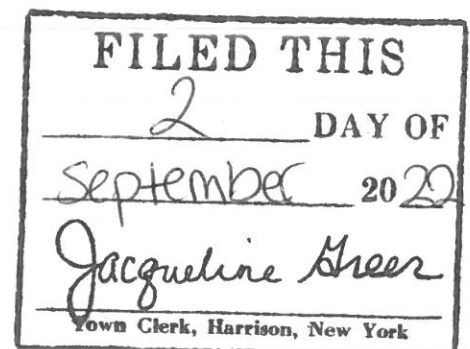 FILED THIS
2 DAY OF
September 2022
Jacqueline Greer
Town Clerk, Harrison, New York